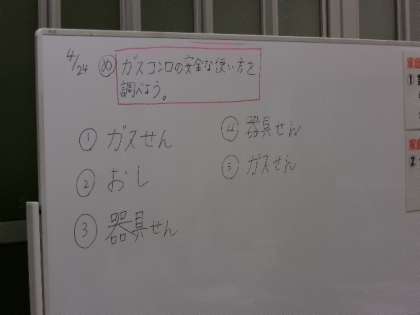 4/24 め ガスコンロの安全な使い方を
調べよう。
① ガスせん
② おし
③ 器具せん
④ 器具せん
⑤ ガスせん